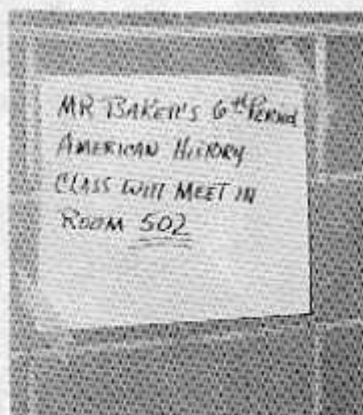 MR BAKER'S 6th PERIOD
AMERICAN HISTORY
CLASS WILL MEET IN
ROOM 502